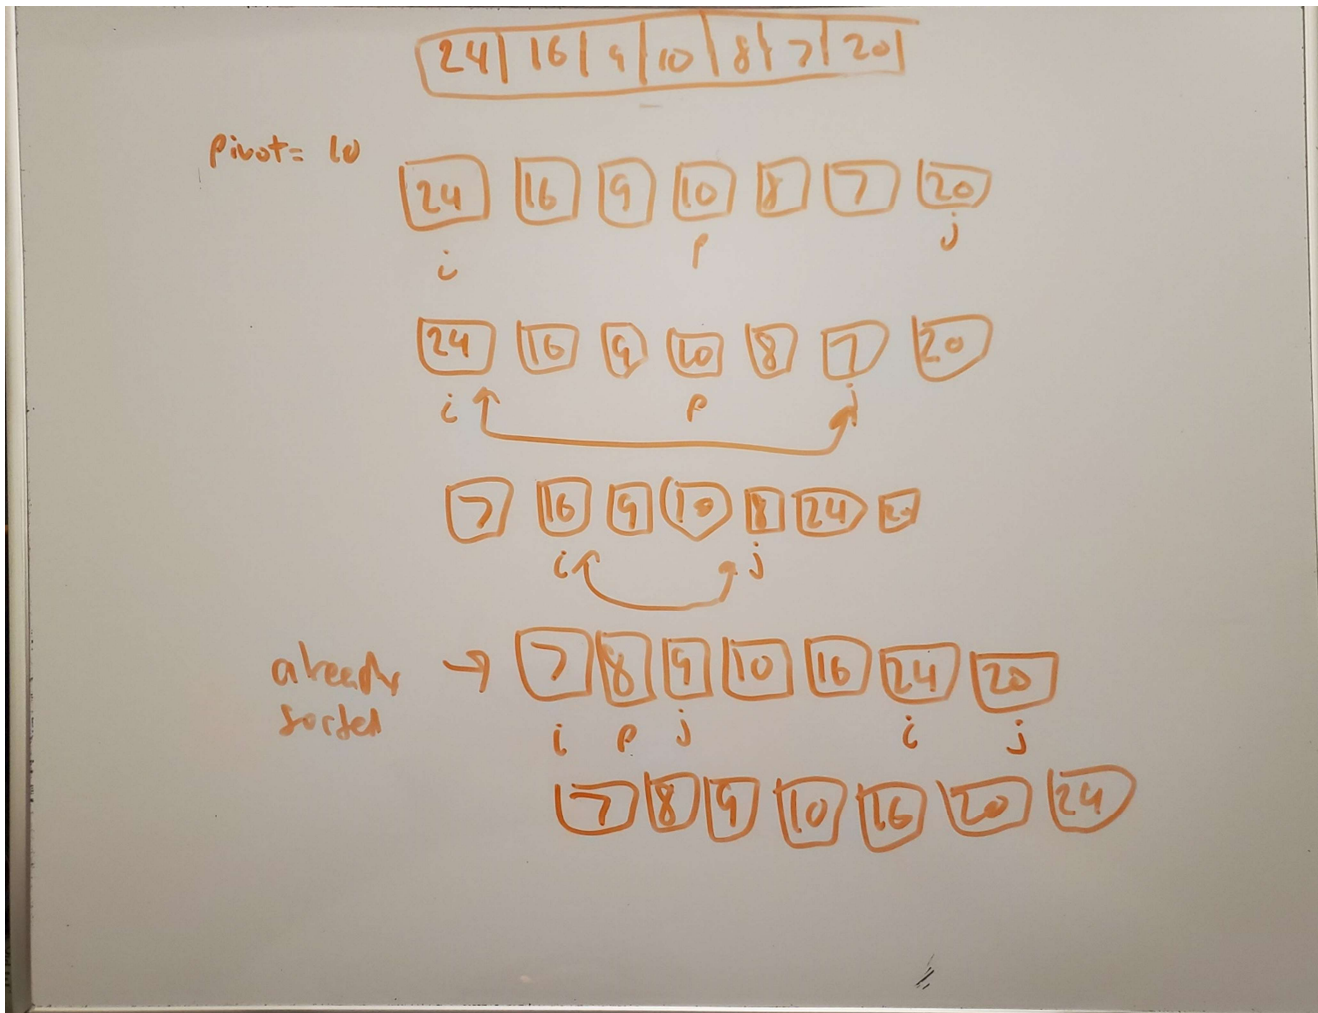 24 | 16 | 9 | 10 | 8 | 7 | 20
pivot= 10
24 16 9 10 8 7 20
i p j
24 16 9 10 8 7 20
i p j
7 16 9 10 8 24 20
i j
already → 7 8 9 10 16 24 20
sorted
i p j i j
7 8 9 10 16 20 24